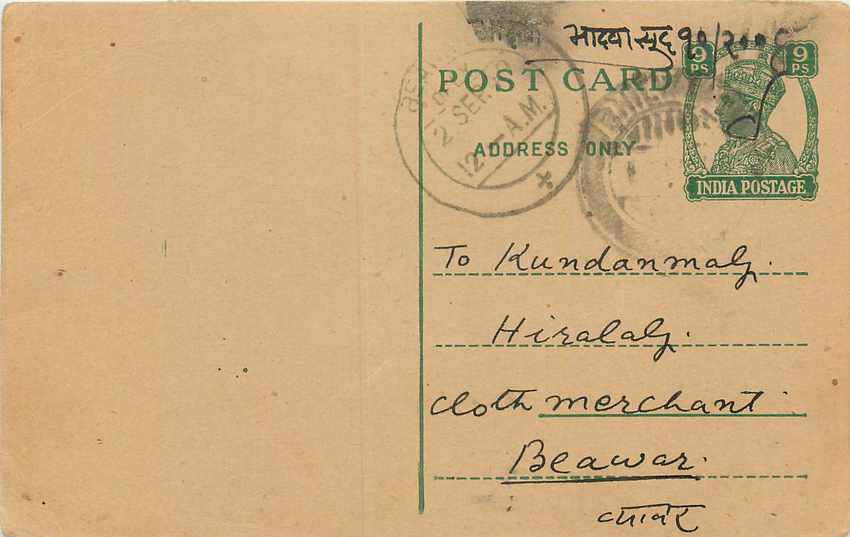 भादवा सूद १०/२००६
POST CARD
9 PS 9 PS
ADDRESS ONLY
INDIA POSTAGE
2 SEP.
12 A.M.
To Kundanmalj.
Hiralalj.
cloth merchant
Beawar.
ब्यावर